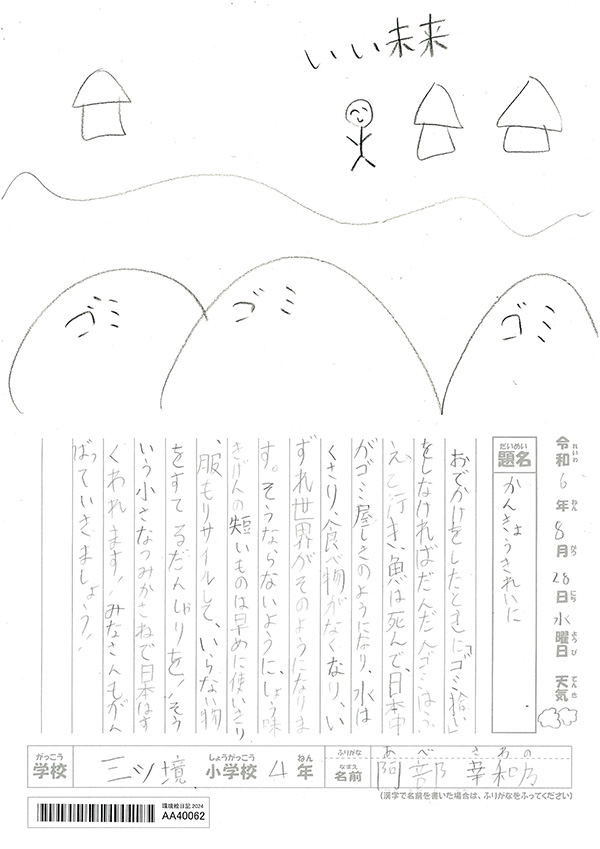 いい未来
ゴミ
ゴミ
ゴミ
令和6年8月28日水曜日 天気
れいわ ねん がつ にち ようび てんき
だいめい
題名
かんきょうきれいに
おでかけをしたときに「ゴミ拾い」
をしなければだんだんゴミはふ
えて行き、魚は死んで、日本中
がゴミ屋しきのようになり、水は
くさり、食べ物がなくなり、い
ずれ世界がそのようになりま
す。そうならないように、しょう味
きげんの短いものは早めに使いきり
、服もリサイルして、いらない物
をすてるだんしゃりを!そう
いう小さなつみかさねで日本はす
くわれます!みなさんもがん
ばっていきましょう!
がっこう しょうがっこう ねん
学校 三ツ境 小学校 4年
ふりがな あべ さわの
なまえ
名前 阿部 幸和乃
(漢字で名前を書いた場合は、ふりがなをふってください)
環境絵日記2024
AA40062